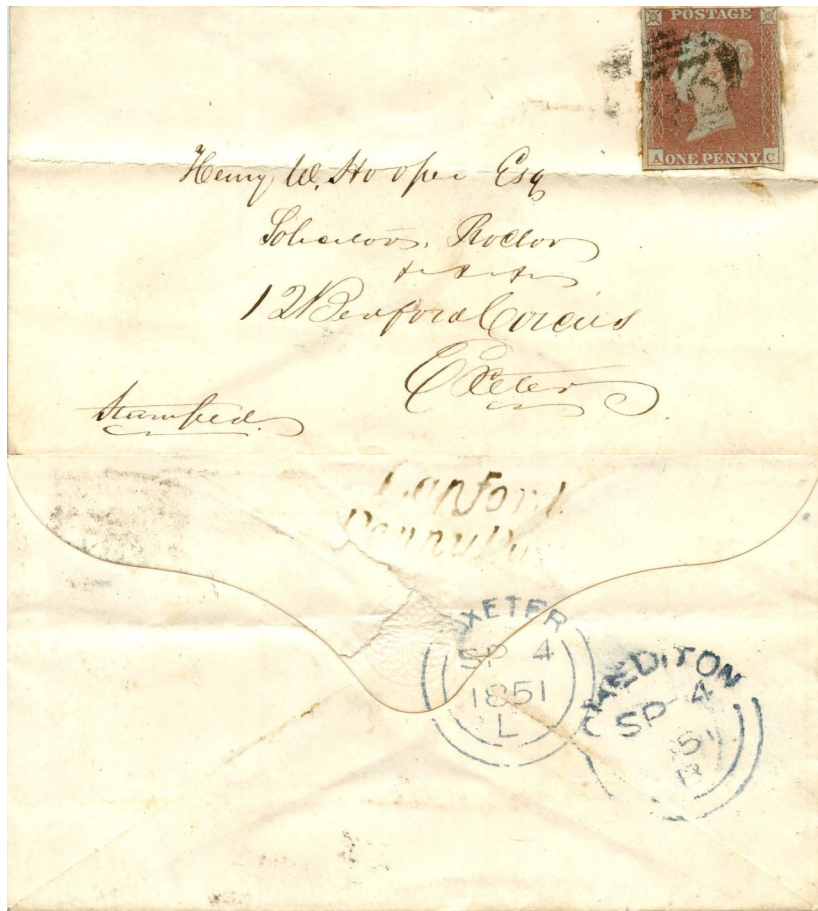 POSTAGE
A ONE PENNY C
Henry W. Hooper Esq
Solicitor, Proctor
12 Bedford Circus
Exeter
Stamped
Penny
EXETER
SP 4
1851
L
CREDITON
SP 4
51